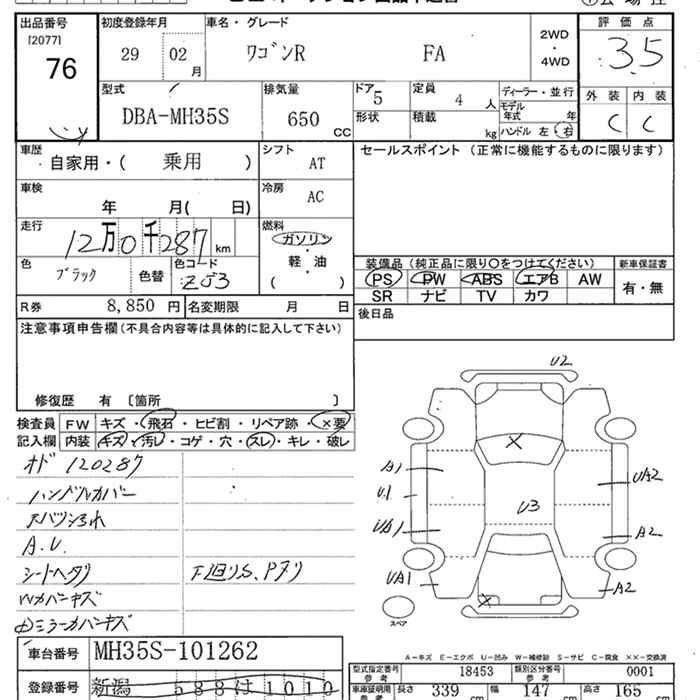 出品番号
[2077]
76
初度登録年月
29 02
月
車名・グレード
ワゴンR FA
2WD
・
4WD
評価点
3.5
外装 内装
C C
型式
DBA-MH35S
排気量
650 CC
ドア 5
定員 4 人
形状
積載 kg
ディーラー・並行
モデル
年式 年
ハンドル 左・右
車歴
自家用・( 乗用 )
シフト AT
車検
年 月( 日)
冷房 AC
走行
12万0千287 km
燃料
ガソリン
・
軽・油
( )
色 ブラック
色替
色コード
Z03
R券 8,850 円
名変期限 月 日
セールスポイント (正常に機能するものに限ります)
装備品 (純正品に限り○をつけてください)
新車保証書
PS PW ABS エアB AW
SR ナビ TV カワ
有・無
後日品
注意事項申告欄(不具合内容等は具体的に記入して下さい)
修復歴 有 〔箇所 〕
検査員
記入欄
FW キズ・飛石・ヒビ割・リペア跡・×要
内装 キズ・汚レ・コゲ・穴・スレ・キレ・破レ
オド 120287
ハンドルカバー
A.U.
シートヘタリ
下廻りS、Pタリ
Wカバーキズ
ミラーカバーキズ
U2
A1
U1
UA1
UA1
U3
UA2
A2
A2
スペア
A－キズ E－エクボ U－凹み W－補修跡 S－サビ C－腐食 ××－交換済
車台番号 MH35S-101262
登録番号 新潟 588は1010
型式指定番号
参考
18453
類別区分番号
参考
0001
車庫証明用
参考
長さ 339 cm
幅 147 cm
高さ 165 cm